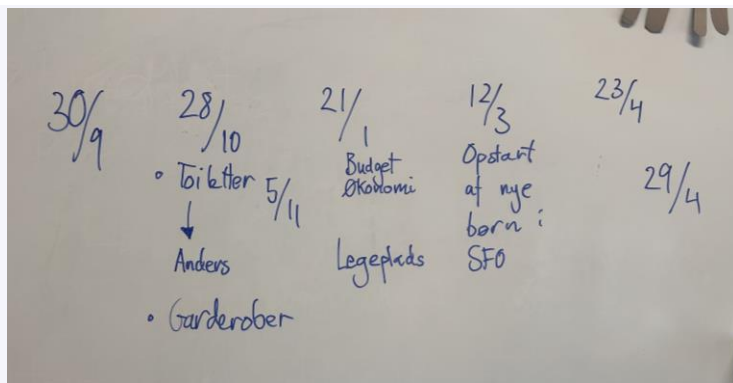 30/9
28/10
• Toiletter
↓
Anders
• Garderober
5/11
21/1
Budget
Økonomi
Legeplads
12/3
Opstart
af nye
børn i
SFO
23/4
29/4